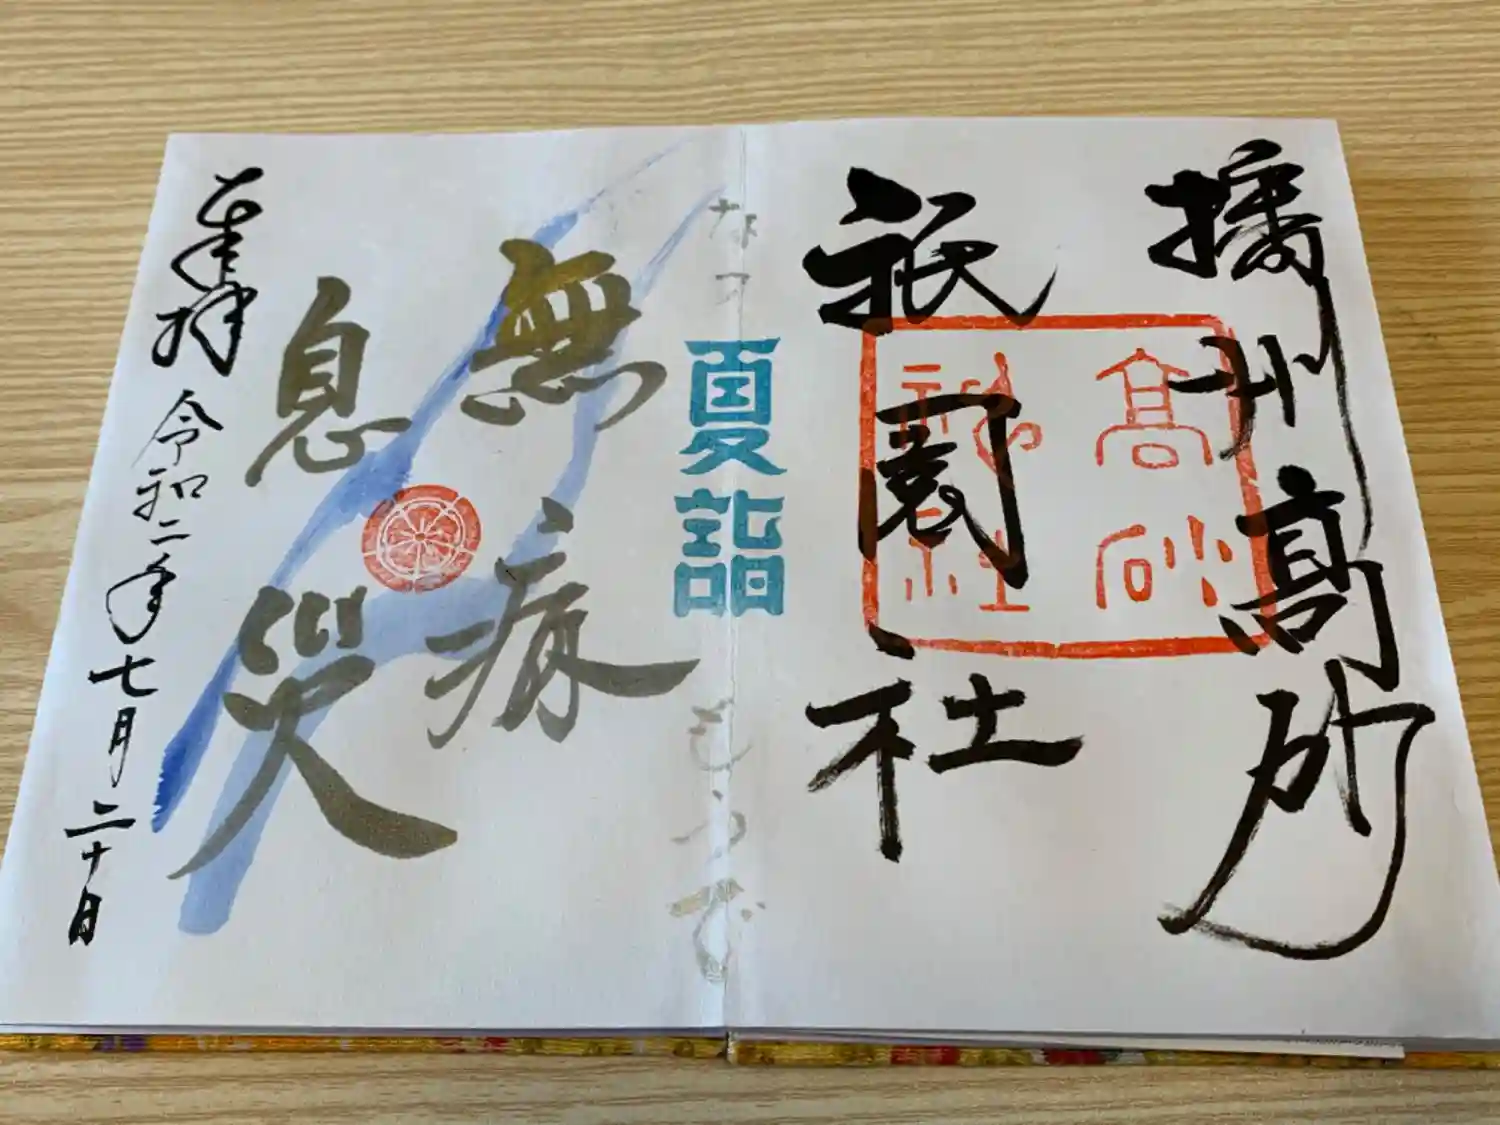 播州高砂
祇園社
高砂
神社
なつ
夏詣
もうで
無病
息災
奉拝
令和二年七月二十日